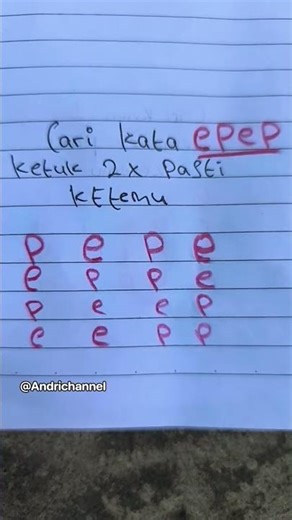 Cari kata epep
ketuk 2x pasti
kEtemu
p e p e
e p p e
p e e p
e e p p
@Andrichannel